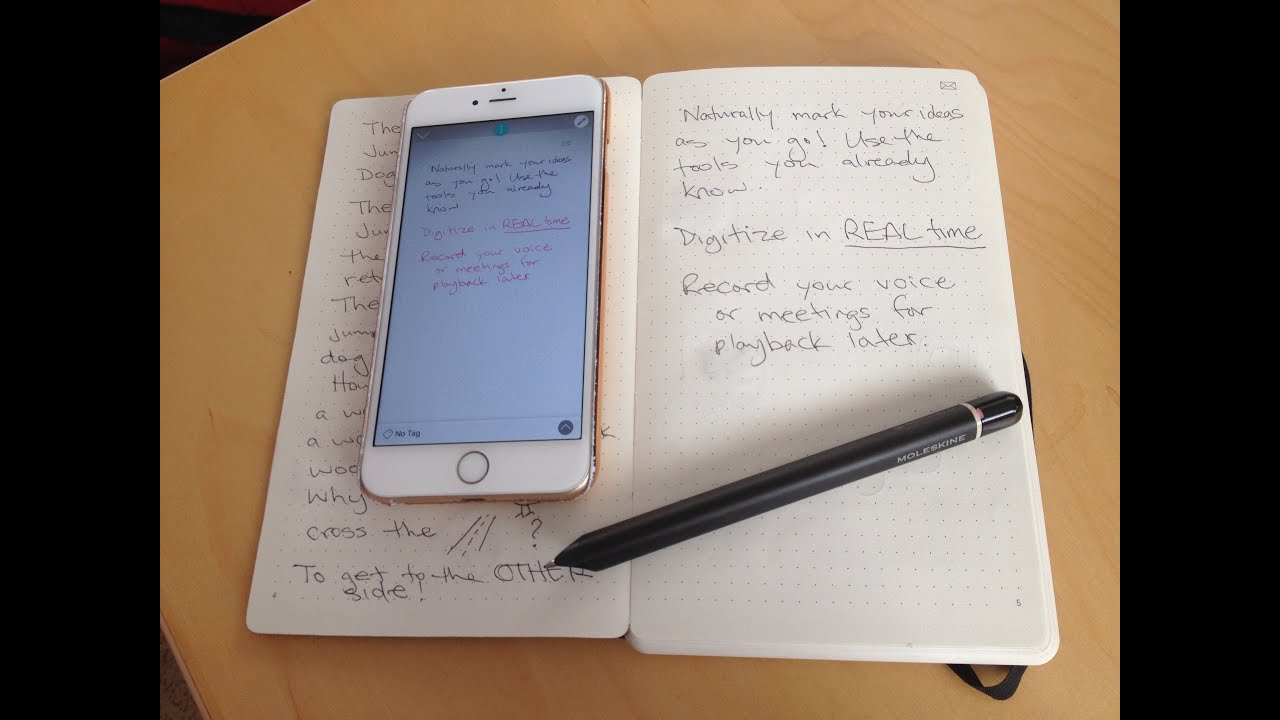 The
Jum
Dog
The
Jum
the
ret
The
jum
dog
How
a w
a wo
woo
Why
cross the
?
To get to the OTHER
side!
4
Naturally mark your ideas
as you go! Use the
tools you already
know
Digitize in REAL time
Record your voice
or meetings for
playback later
No Tag
Naturally mark your ideas
as you go! Use the
tools you already
know..
Digitize in REAL time
Record your voice
or meetings for
playback later.
MOLESKINE
5